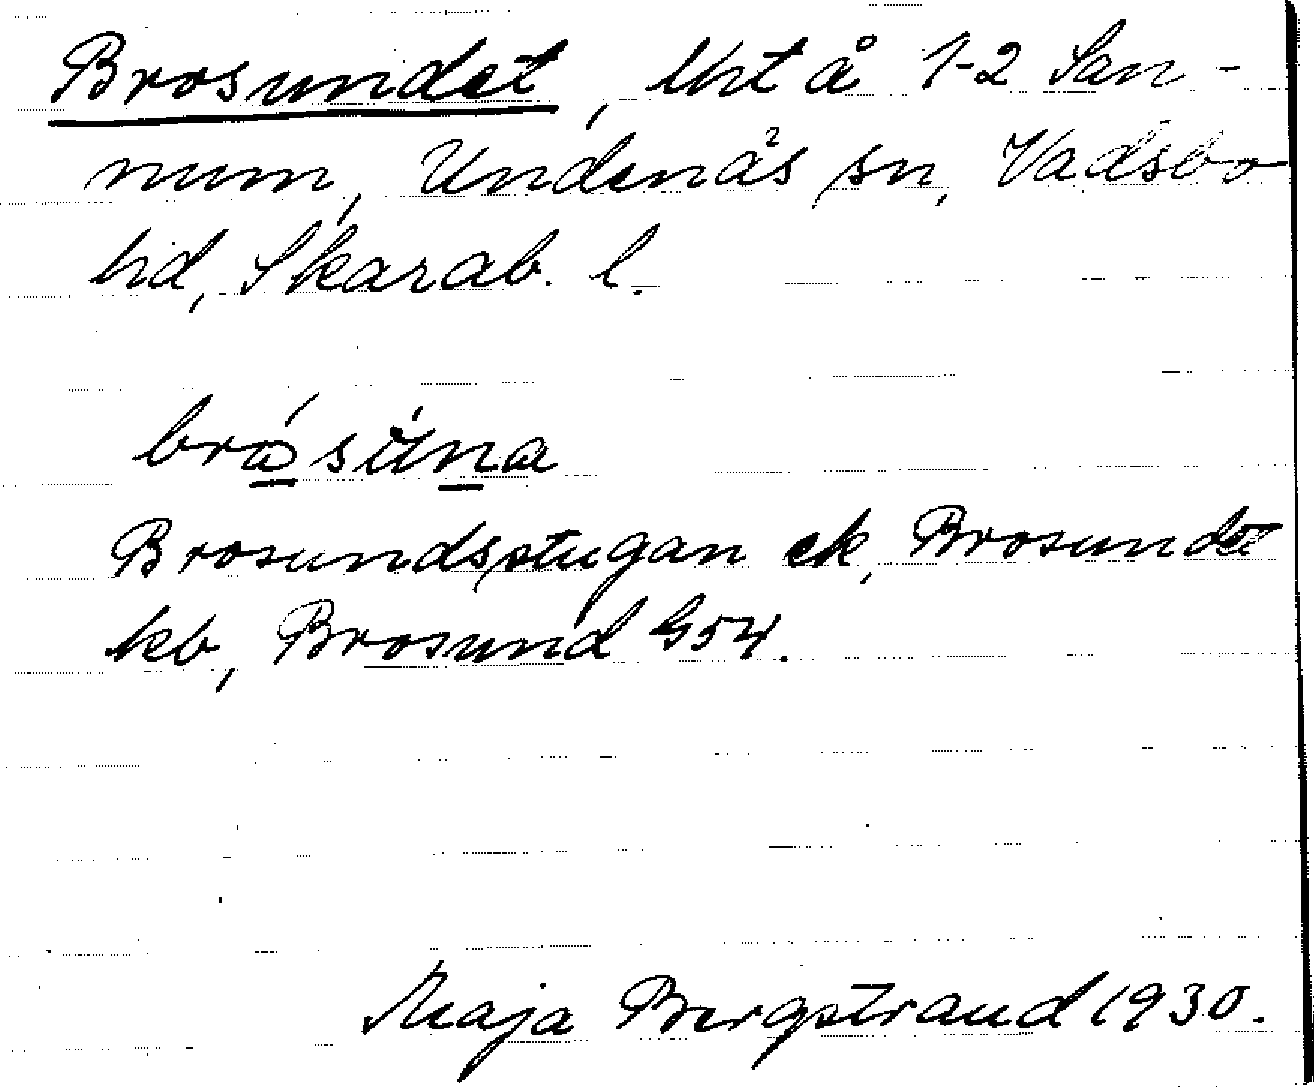 Brosundet, Urt å 1-2 San-
num, Undenäs sn, Vadsbo
hd, Skarab. l.
bråsúna
Brosundsstugan ek, Brosundet
kb, Brosund G54.
Maja Bergstrand 1930.